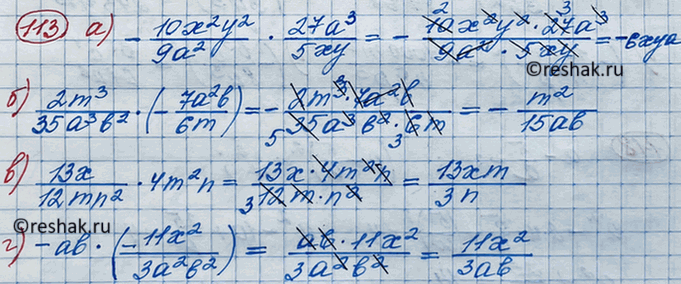 113 а) - 10x²y²/9a² · 27a³/5xy = - 10x²y² · 27a³/9a² · 5xy = -6xya
© reshak.ru
б) 2m³/35a³b² · (- 7a²b/6m) = - 2m³ · 7a²b/35a³b² · 6m = - m²/15ab
в) 13x/12mn² · 4m²n = 13x · 4m²n/12m · n² = 13xm/3n
© reshak.ru
г) -ab · (-11x²/3a²b²) = ab · 11x²/3a²b² = 11x²/3ab